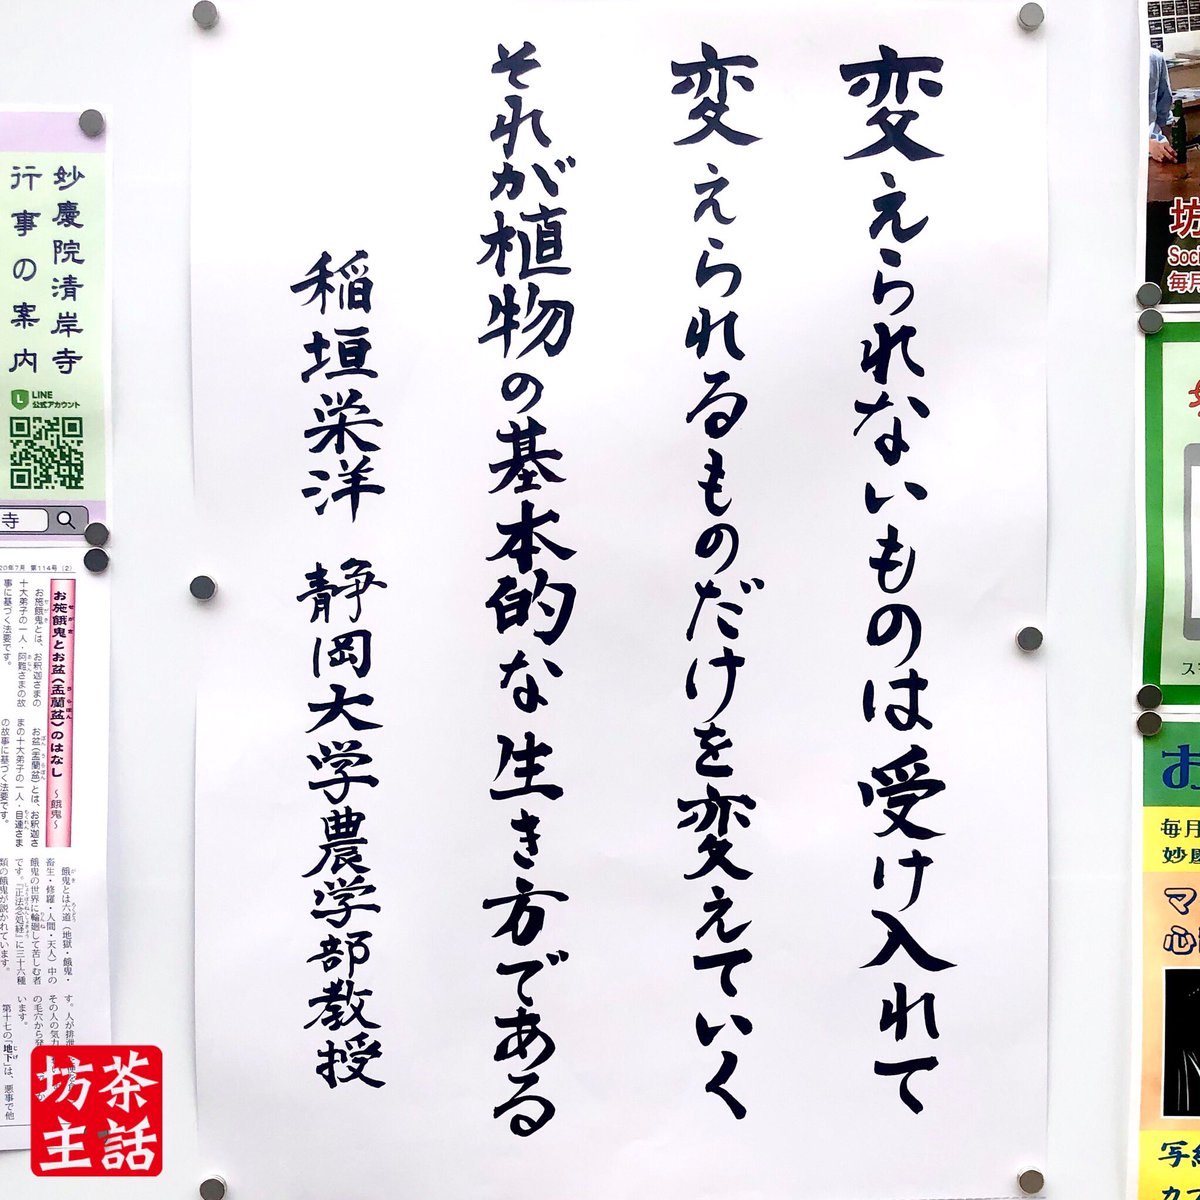 変えられないものは受け入れて
変えられるものだけを変えていく
それが植物の基本的な生き方である
稲垣栄洋 静岡大学農学部教授
妙慶院清岸寺
行事の案内
LINE
公式アカウント
寺
20年7月 第114号 (2)
お施餓鬼とお盆(盂蘭盆)のはなし ~餓鬼~
お施餓鬼とは、お釈迦さまの
十大弟子の一人・阿難さまの故
事に基づく法要です。
お盆(盂蘭盆)とは、お釈迦さ
まの十大弟子の一人・目連さま
の故事に基づく法要です。
餓鬼とは六道(地獄・餓鬼・
畜生・修羅・人間・天人)中の
餓鬼の世界に輪廻して苦しむ者
です。『正法念処経』に三十六種
類の餓鬼が説かれています。
います。
第十七の「地下」は、悪事で他
茶話
坊主
坊
Soci
毎月
お
毎月
妙慶
マ
心
写経